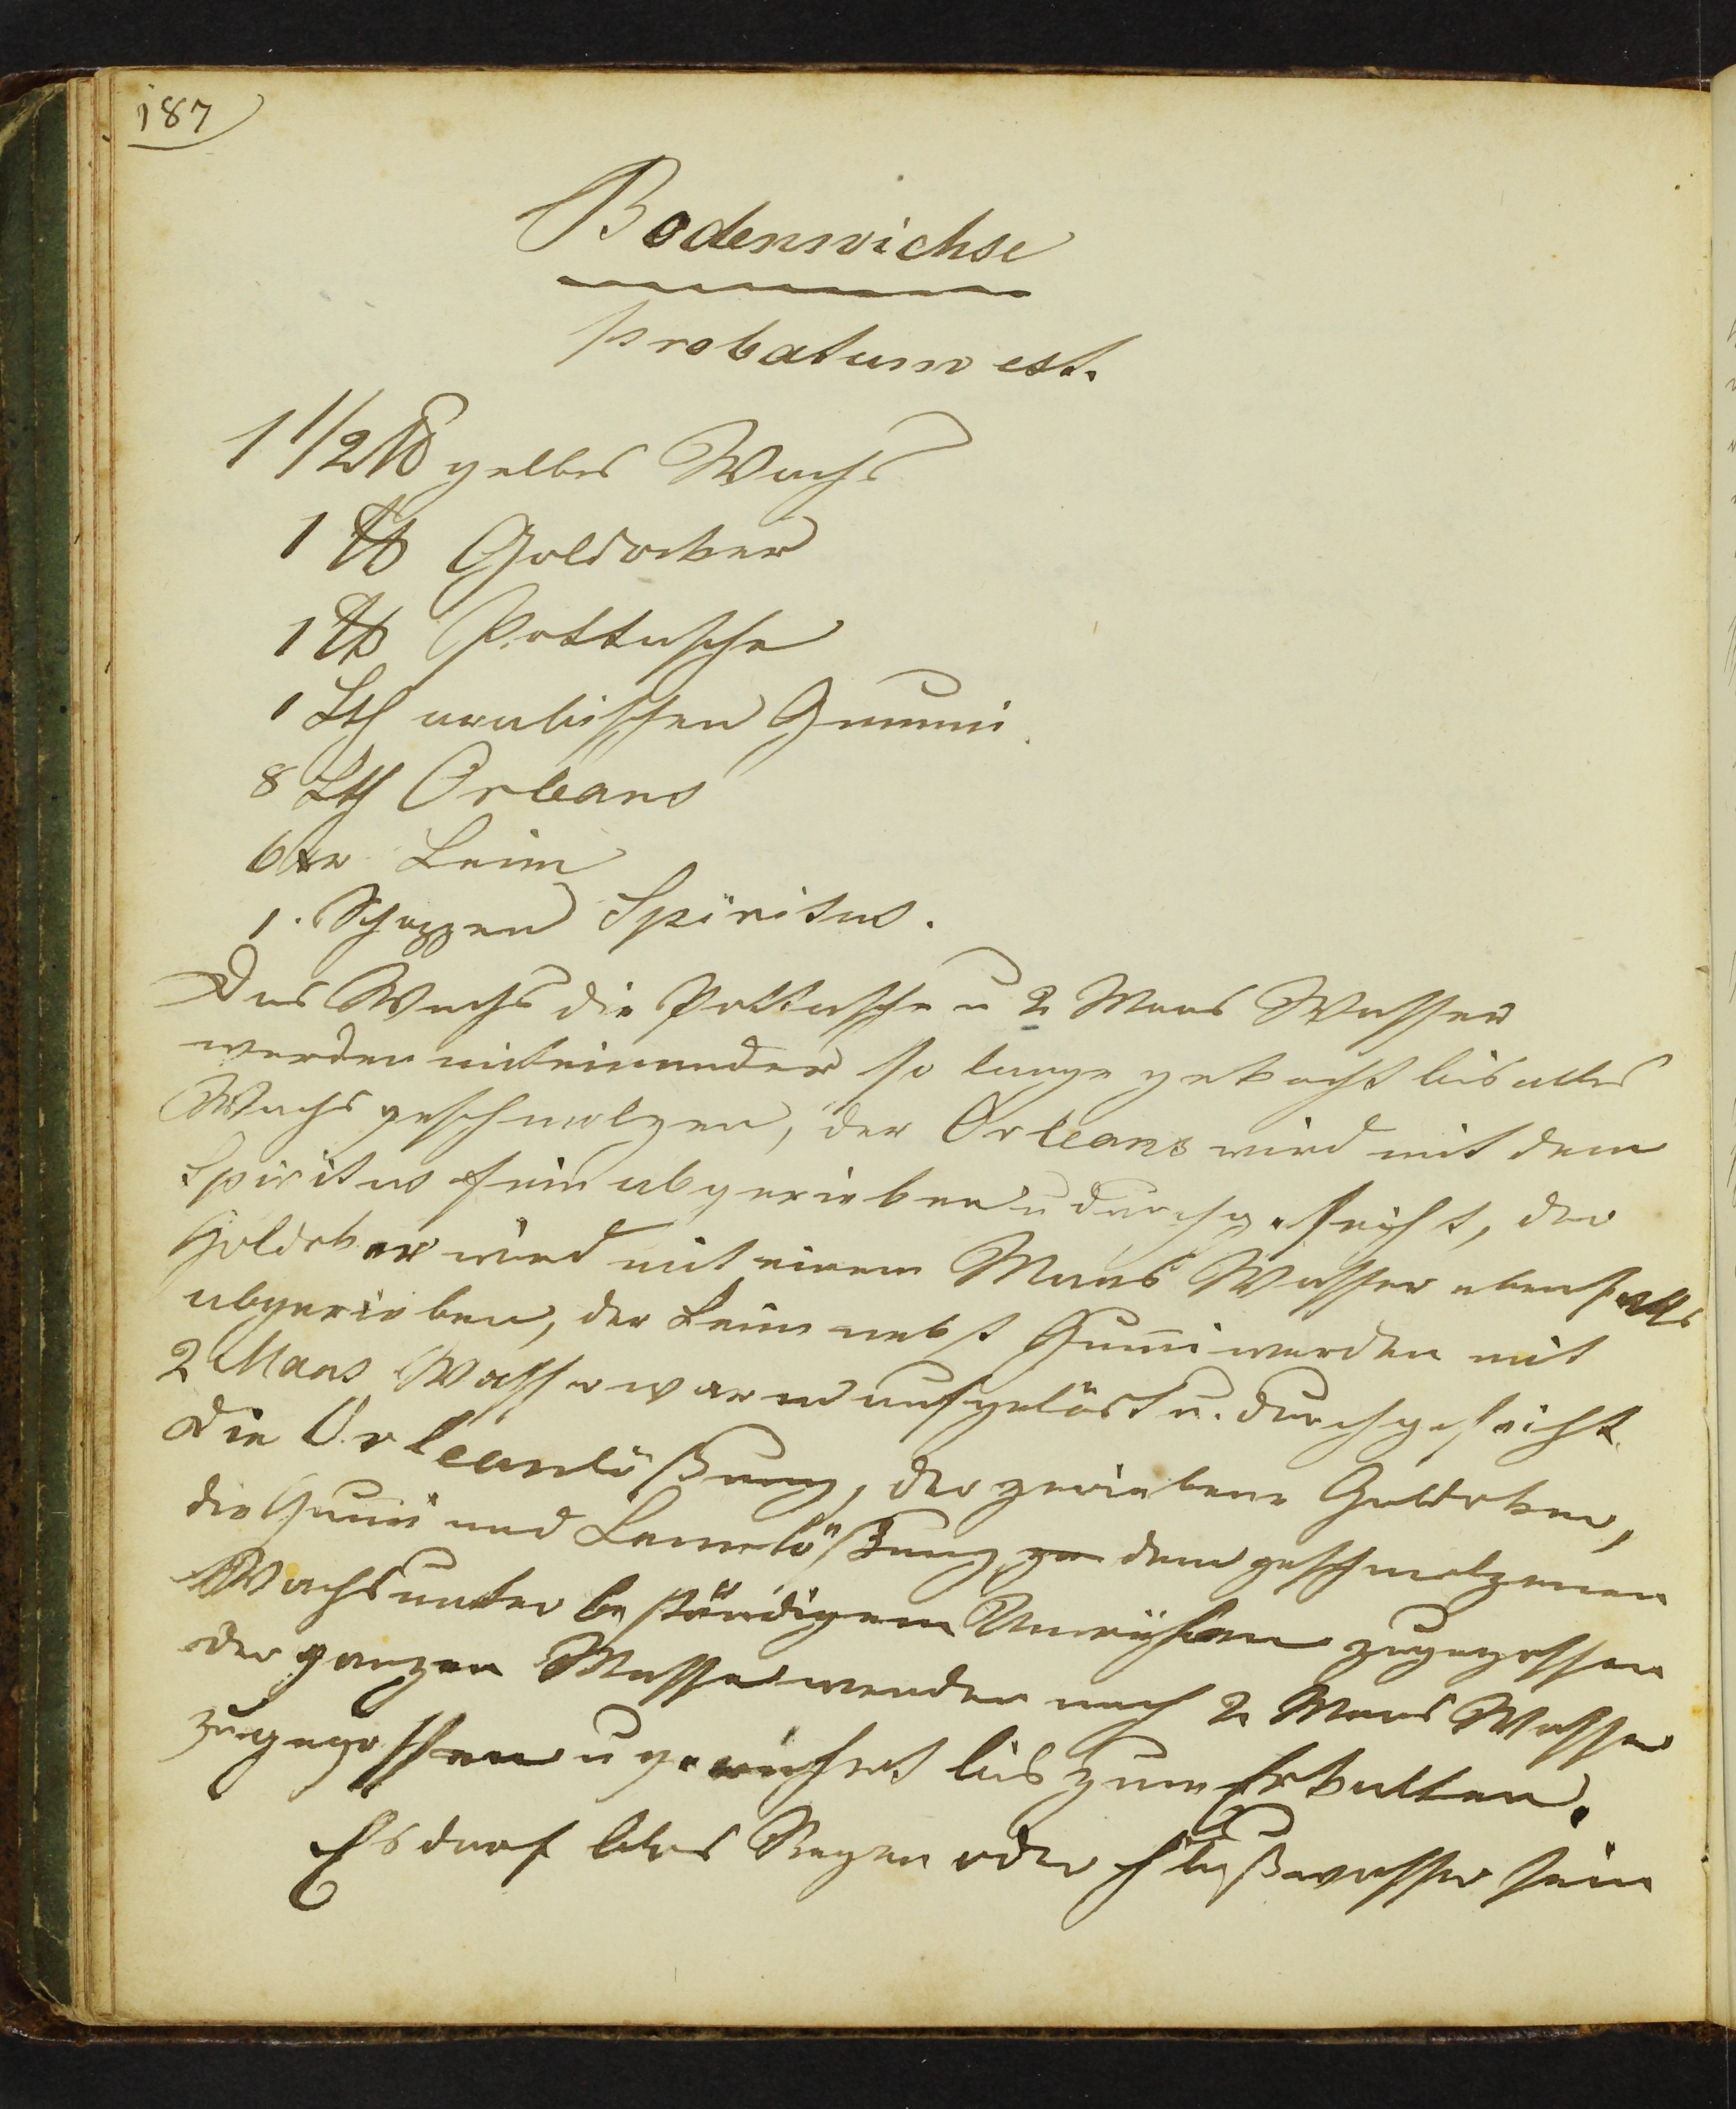 187
Bodenwichse
probatum est.
1 1/2 ℔ gelbes Wachs
1 ℔ Goldocker
1 ℔ Pottasche
1 Lth arabischen Gummi
8 Lth Orleans
6 Leim
1. Schoppen Spiritus.
Das Wachs die Pottasche u 2 Maas Wasser
werden miteinander so lange gekocht bis alles
Wachs geschmolzen, der Orleans wird mit dem
Spiritus fein abgerieben u durchgeseiht, der
Goldoker wird mit einem Maas Wasser ebenfalls
abgerieben, der Leim nebst Gum̅i werden mit
2 Maas Wasser warm aufgelöst u. durchgeseiht.
Die Orleanlößung, der geriebene Goldoker,
die Gum̅i und Leimlößung zu dem geschmolzenen
Wachs unter beständigem Umrühren zugegossen
der ganzen Masse werden noch 2 Maas Wasser
zugegossen u gerühret bis zum Erkalten.
Es darf blos Regen oder Flußwasser sein